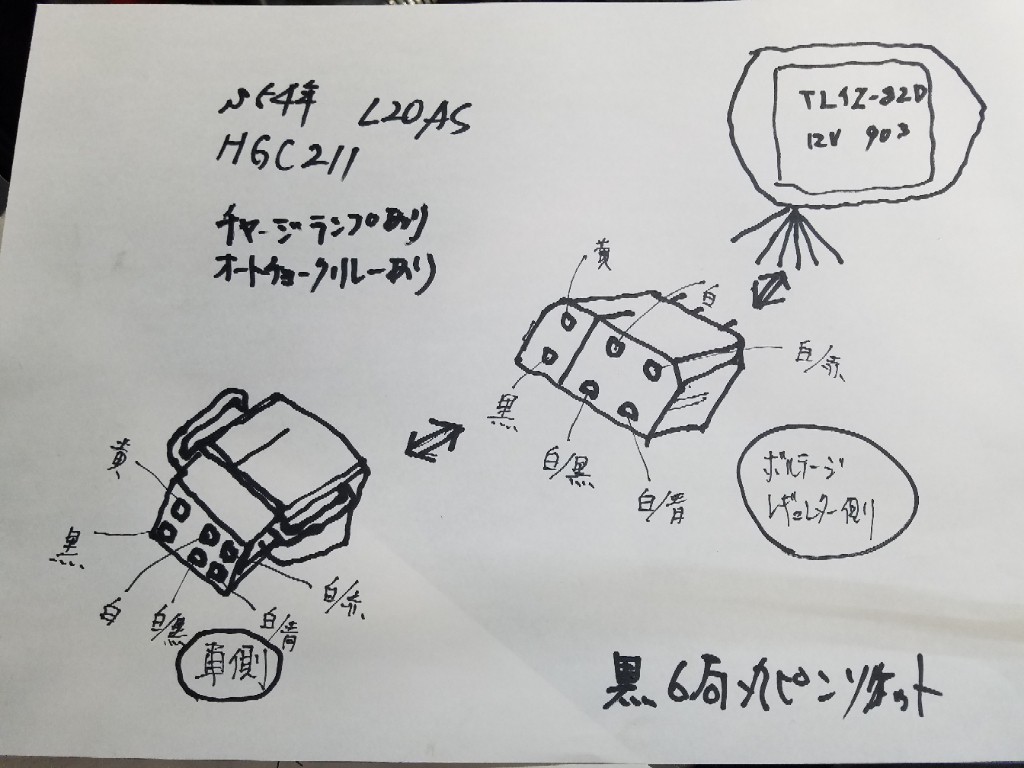 S54年 L20AS
HGC211
チャージランプあり
オートチョークリレーあり
TL1Z-82D
12V 903
黄
白
白/赤
黒
白/黒
白/青
ボルテージ
レギュレター側
黄
黒
白
白/黒
白/青
白/赤
車側
黒6局丸ピンソケット